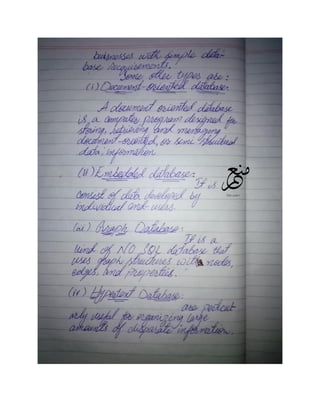 businesses with simple data-
base requirements.
Some other types are:
(i) Document-oriented database:
A document oriented database
is a computer program designed for
storing, retrieving and managing
document-oriented, or semi structured
data, information
(ii) Embedded database:
It is
consist of data developed by
individual end users.
(iii) Graph Database:
It is a
kind of NO SQL database that
uses graph structures with nodes,
edges, and properties.
(iv) Hypertext Database:
are particul
arly useful for organizing large
amounts of disparate information.